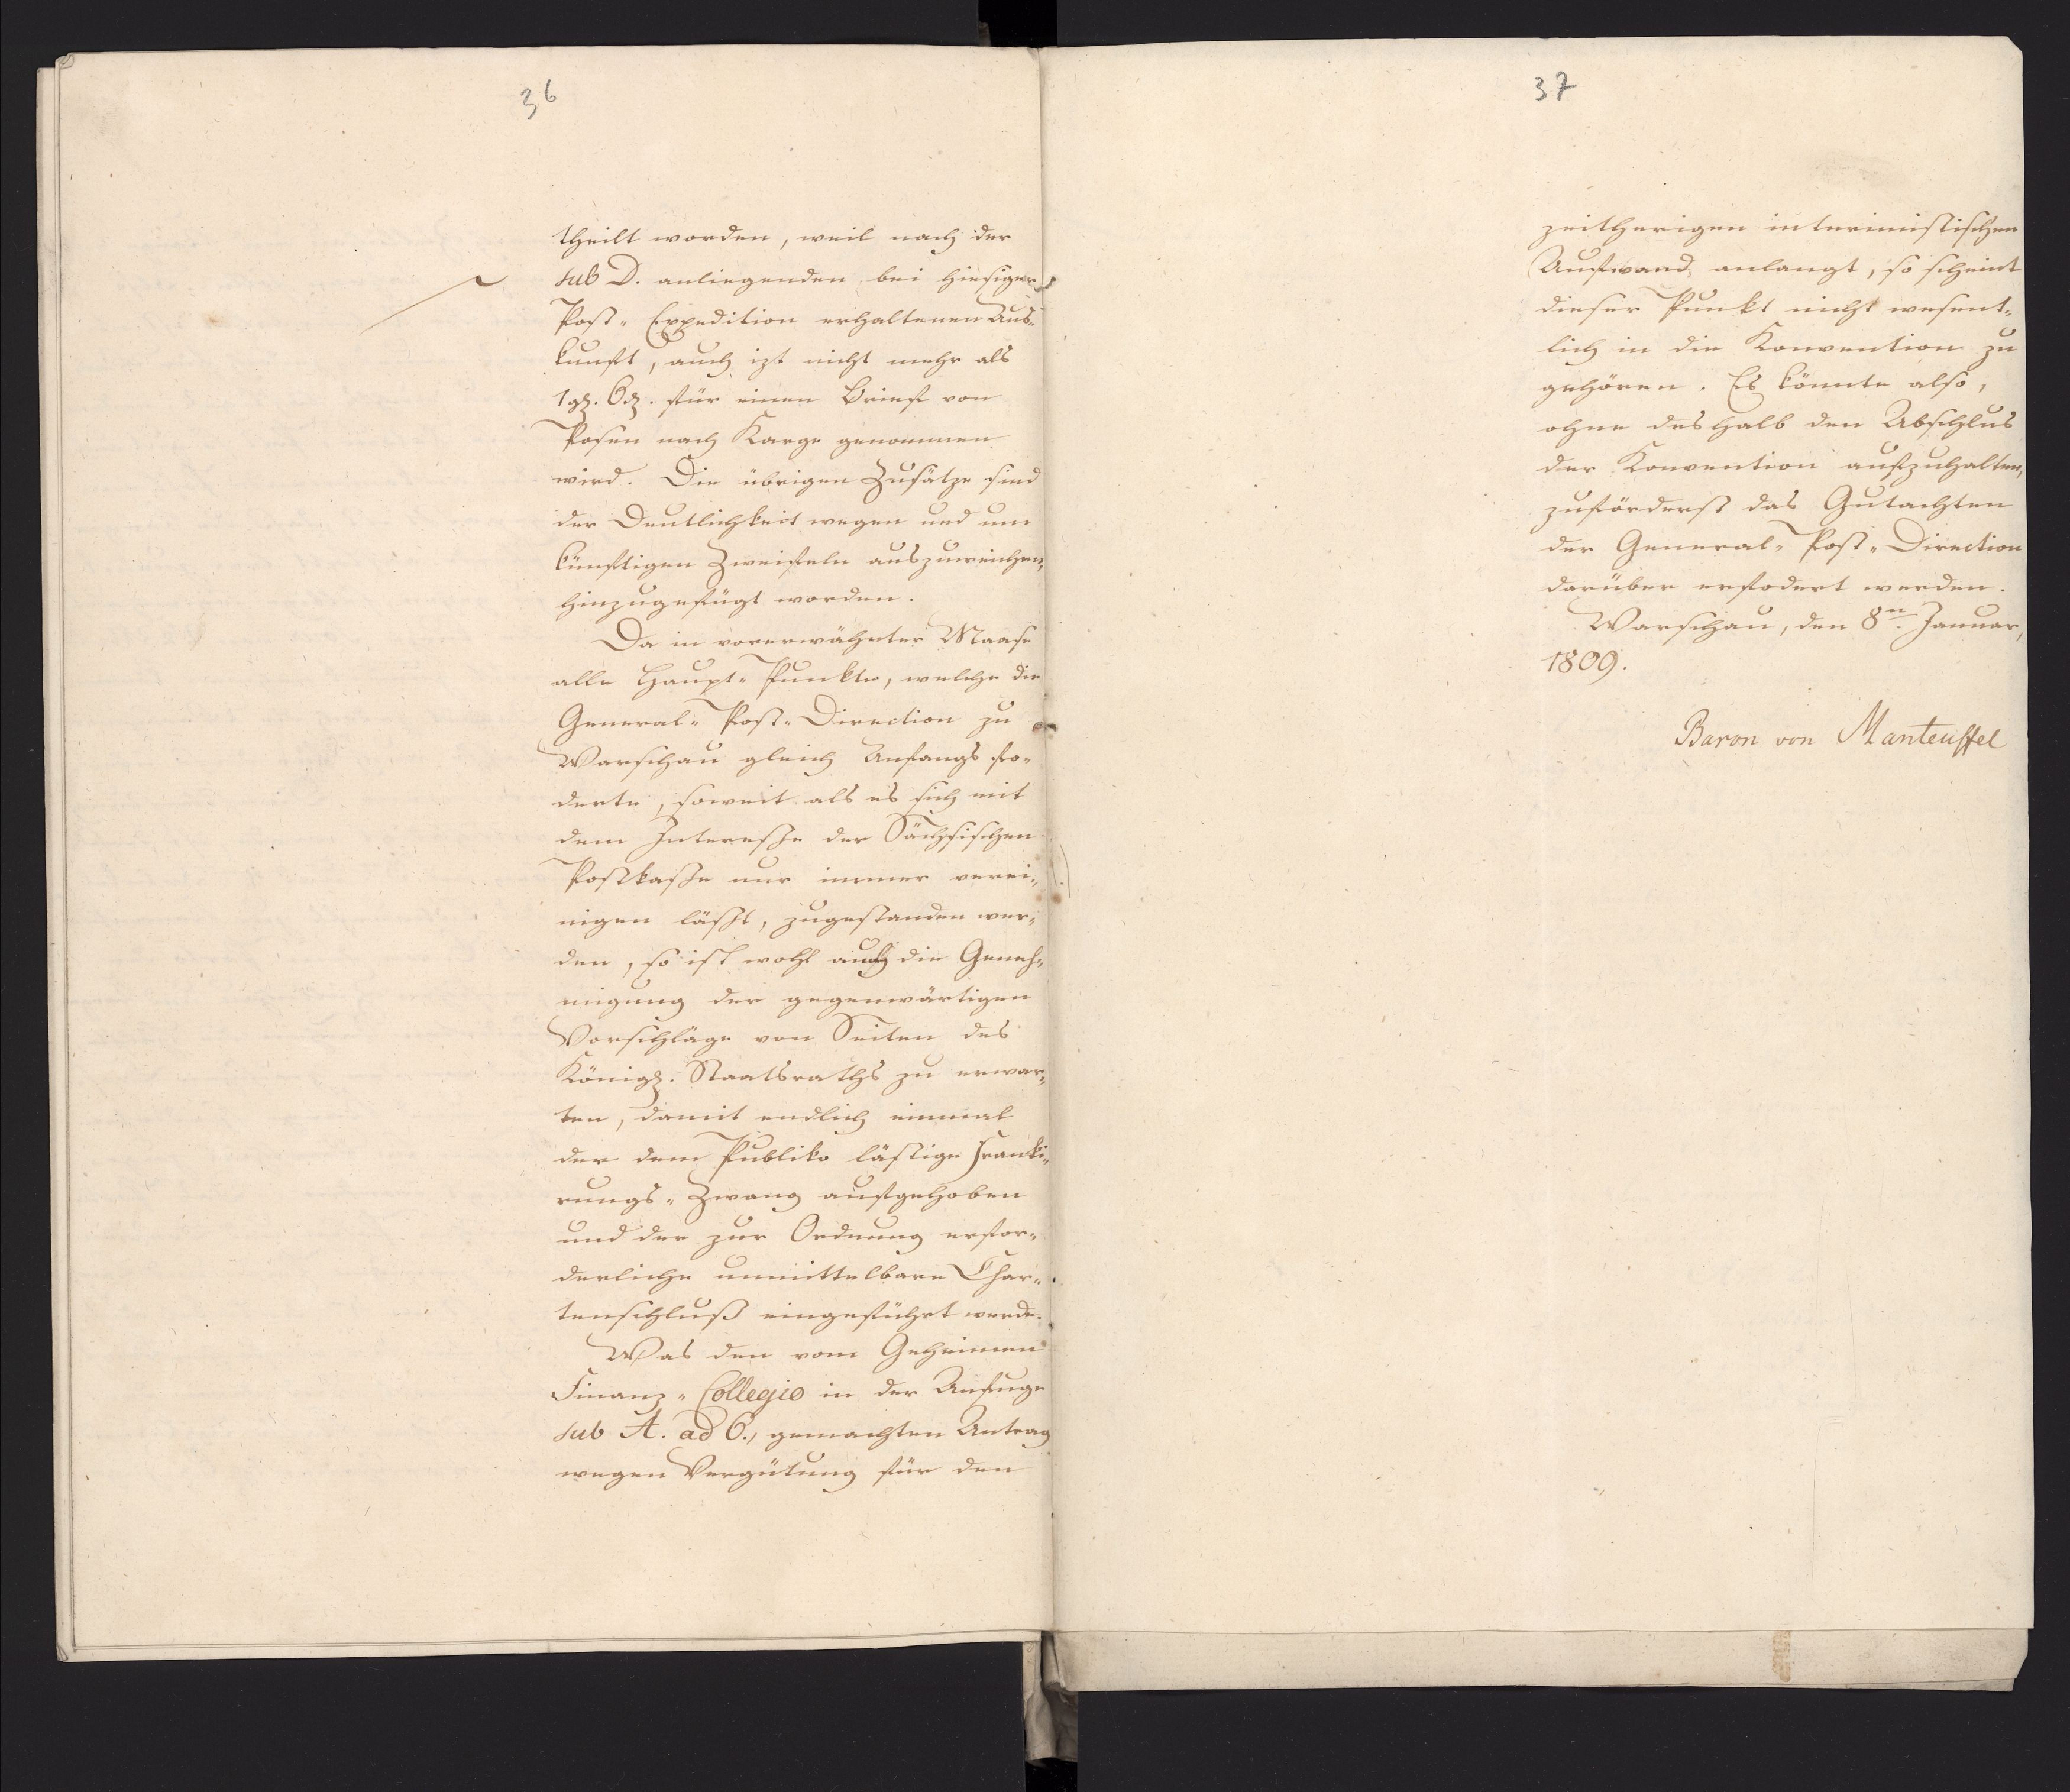 36
theilt worden, weil nach der
sub D. anliegenden bei hiesiger
Post- Expedition erhaltenen Aus-
kunft, auch izt nicht mehr als
1 gl. 6 d. für einen Brief von
Posen nach Karge genommen
wird. Die übrigen Zusätze sind
der Deutlichkeit wegen und um
künftigen Zweifeln auszuweichen,
hinzugefügt worden.
Da in vorerwähnter Maase
alle Haupt- Punkte, welche die
General- Post- Direction zu
Warschau gleich Anfangs fo-
derte, soweit als es sich mit
dem Interesse der Sächsischen
Postkasse nur immer verei-
nigen läßt, zugestanden wer-
den, so ist wohl auch die Geneh-
migung der gegenwärtigen
Vorschläge von Seiten des
Königl. Staatsraths zu erwar-
ten, damit endlich einmal
der dem Publiko lästige Franki-
rungs- Zwang aufgehoben
und der zur Ordnung erfor-
derliche unmittelbare Char-
tenschluß eingeführt werde.
Was den vom Geheimen
Finanz- Collegio in der Anfuge
sub A. ad 6., gemachten Antrag
wegen Vergütung für den
37
zeitherigen interimistischen
Aufwand anlangt, so scheint
dieser Punkt nicht wesent-
lich in die Konvention zu
gehören. Es könnte also,
ohne deshalb den Abschlus
der Konvention aufzuhalten,
zuförderst das Gutachten
der General- Post- Direction
darüber erfodert werden.
Warschau, den 8n. Januar,
1809.
Baron von Manteuffel